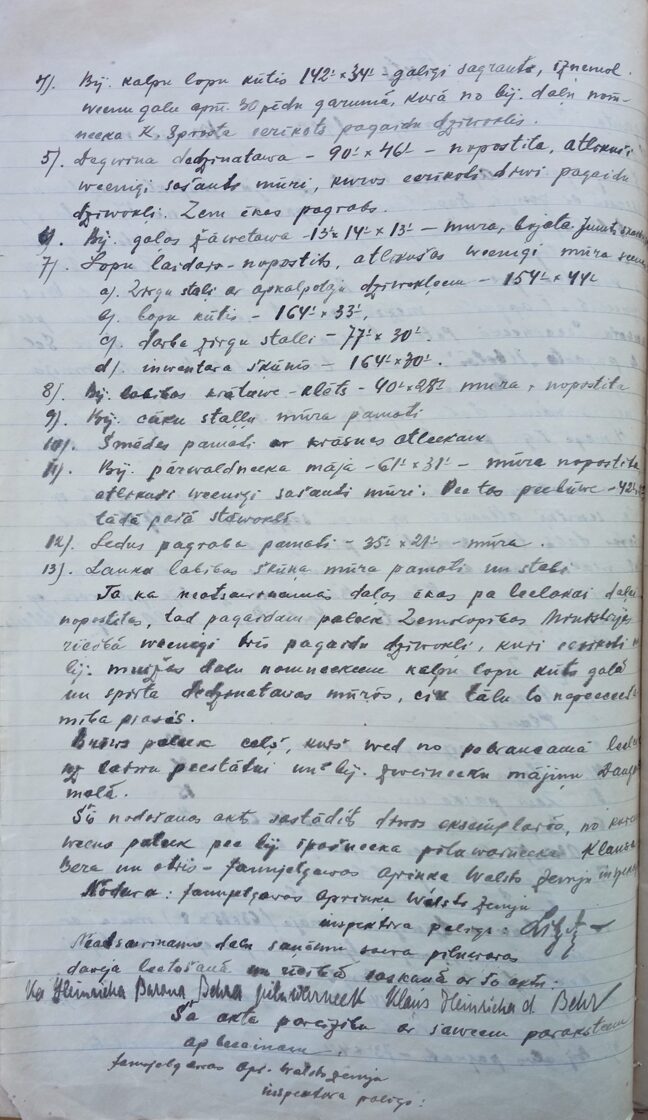 4). Bij. kalpu lopu kūtis 142' × 34' - galigi sagrauta, izņemot
weenu galu apm. 30 pēdu garumā, kurā no bij. daļu nom-
neeka K. Sprosta eerikots pagaidu dzivoklis.
5). Degwina dedzinatawa - 90' × 46' - nopostita, atlikuši
weenigi sašauti mūri, kuros eerikoti divi pagaidu
dzivokļi. Zem ēkas pagrabs.
6). Bij. gaļas žāwetawa - 13' × 14' × 13' - mūra, bojata
7). Lopu laidars - nopostits, atlikušas weenigi mūra
a). Zirgu staļļi ar apkalpotaju dzivokļeem - 154' × 44'
b). lopu kūtis - 164' × 33',
c). darba zirgu stalli - 77' × 30'.
d). inventara šķūnis - 164' × 30'.
8). Bij. labibas krātawe - klēts - 40' × 28' mūra, nopostita
9). Bij. cūku staļļu mūra pamati
10). Smēdes pamati ar krāsnes atleekam
11). Bij. pārwaldneeka māja - 61' × 31' - mūra nopostita
atlikuši weenigi sašauti mūri. Pee tās peebūwe - 42'
tādā pašā stāwoklī
12). Ledus pagraba pamati - 35' × 21' - mūra.
13). Lauka labibas šķūņa mūra pamati un stabi
Tā kā neatsawinamās daļas ēkas pa leelakai daļai
nopostitas, tad pagaidam paleek Zemkopibas Ministrijas
rīcibā weenigi trīs pagaidu dzivokļi, kuri eerikoti
bij. muižas daļu nomneekeem kalpu lopu kūts galā
un spirta dedzinatawas mūros, cik tālu to nepeeceeš-
miba prasās.
Brīws paleek ceļš, kurš wed no pobraucamā
uz laiwu peestātni un bij. zwejneeku mājiņu Daugaw-
malā.
Šis nodošanas akts sastādits divos eksemplaros, no kureem
weens paleek pee bij. īpašneeka pilnwarneeka Klausa
Bera un otris - Jaunjelgawas Apriņķa Walsts zemju inspekt-
Nodewa: Jaunjelgawas Apriņķa Walsts zemju
inspektora paligs:
Neatsawinamo daļu saņēmu sawa pilnwaras
dewēja leetošanā un rīcibā saskaņā ar šo aktu:
Ka Heinricha Barona Behra pilnwarneek Klaus Heinricha d. Behr
Šā akta pareizibu ar saweem parakstem
apleecinam
Jaunjelgawas apr. Walsts zemju
inspektora paligs: